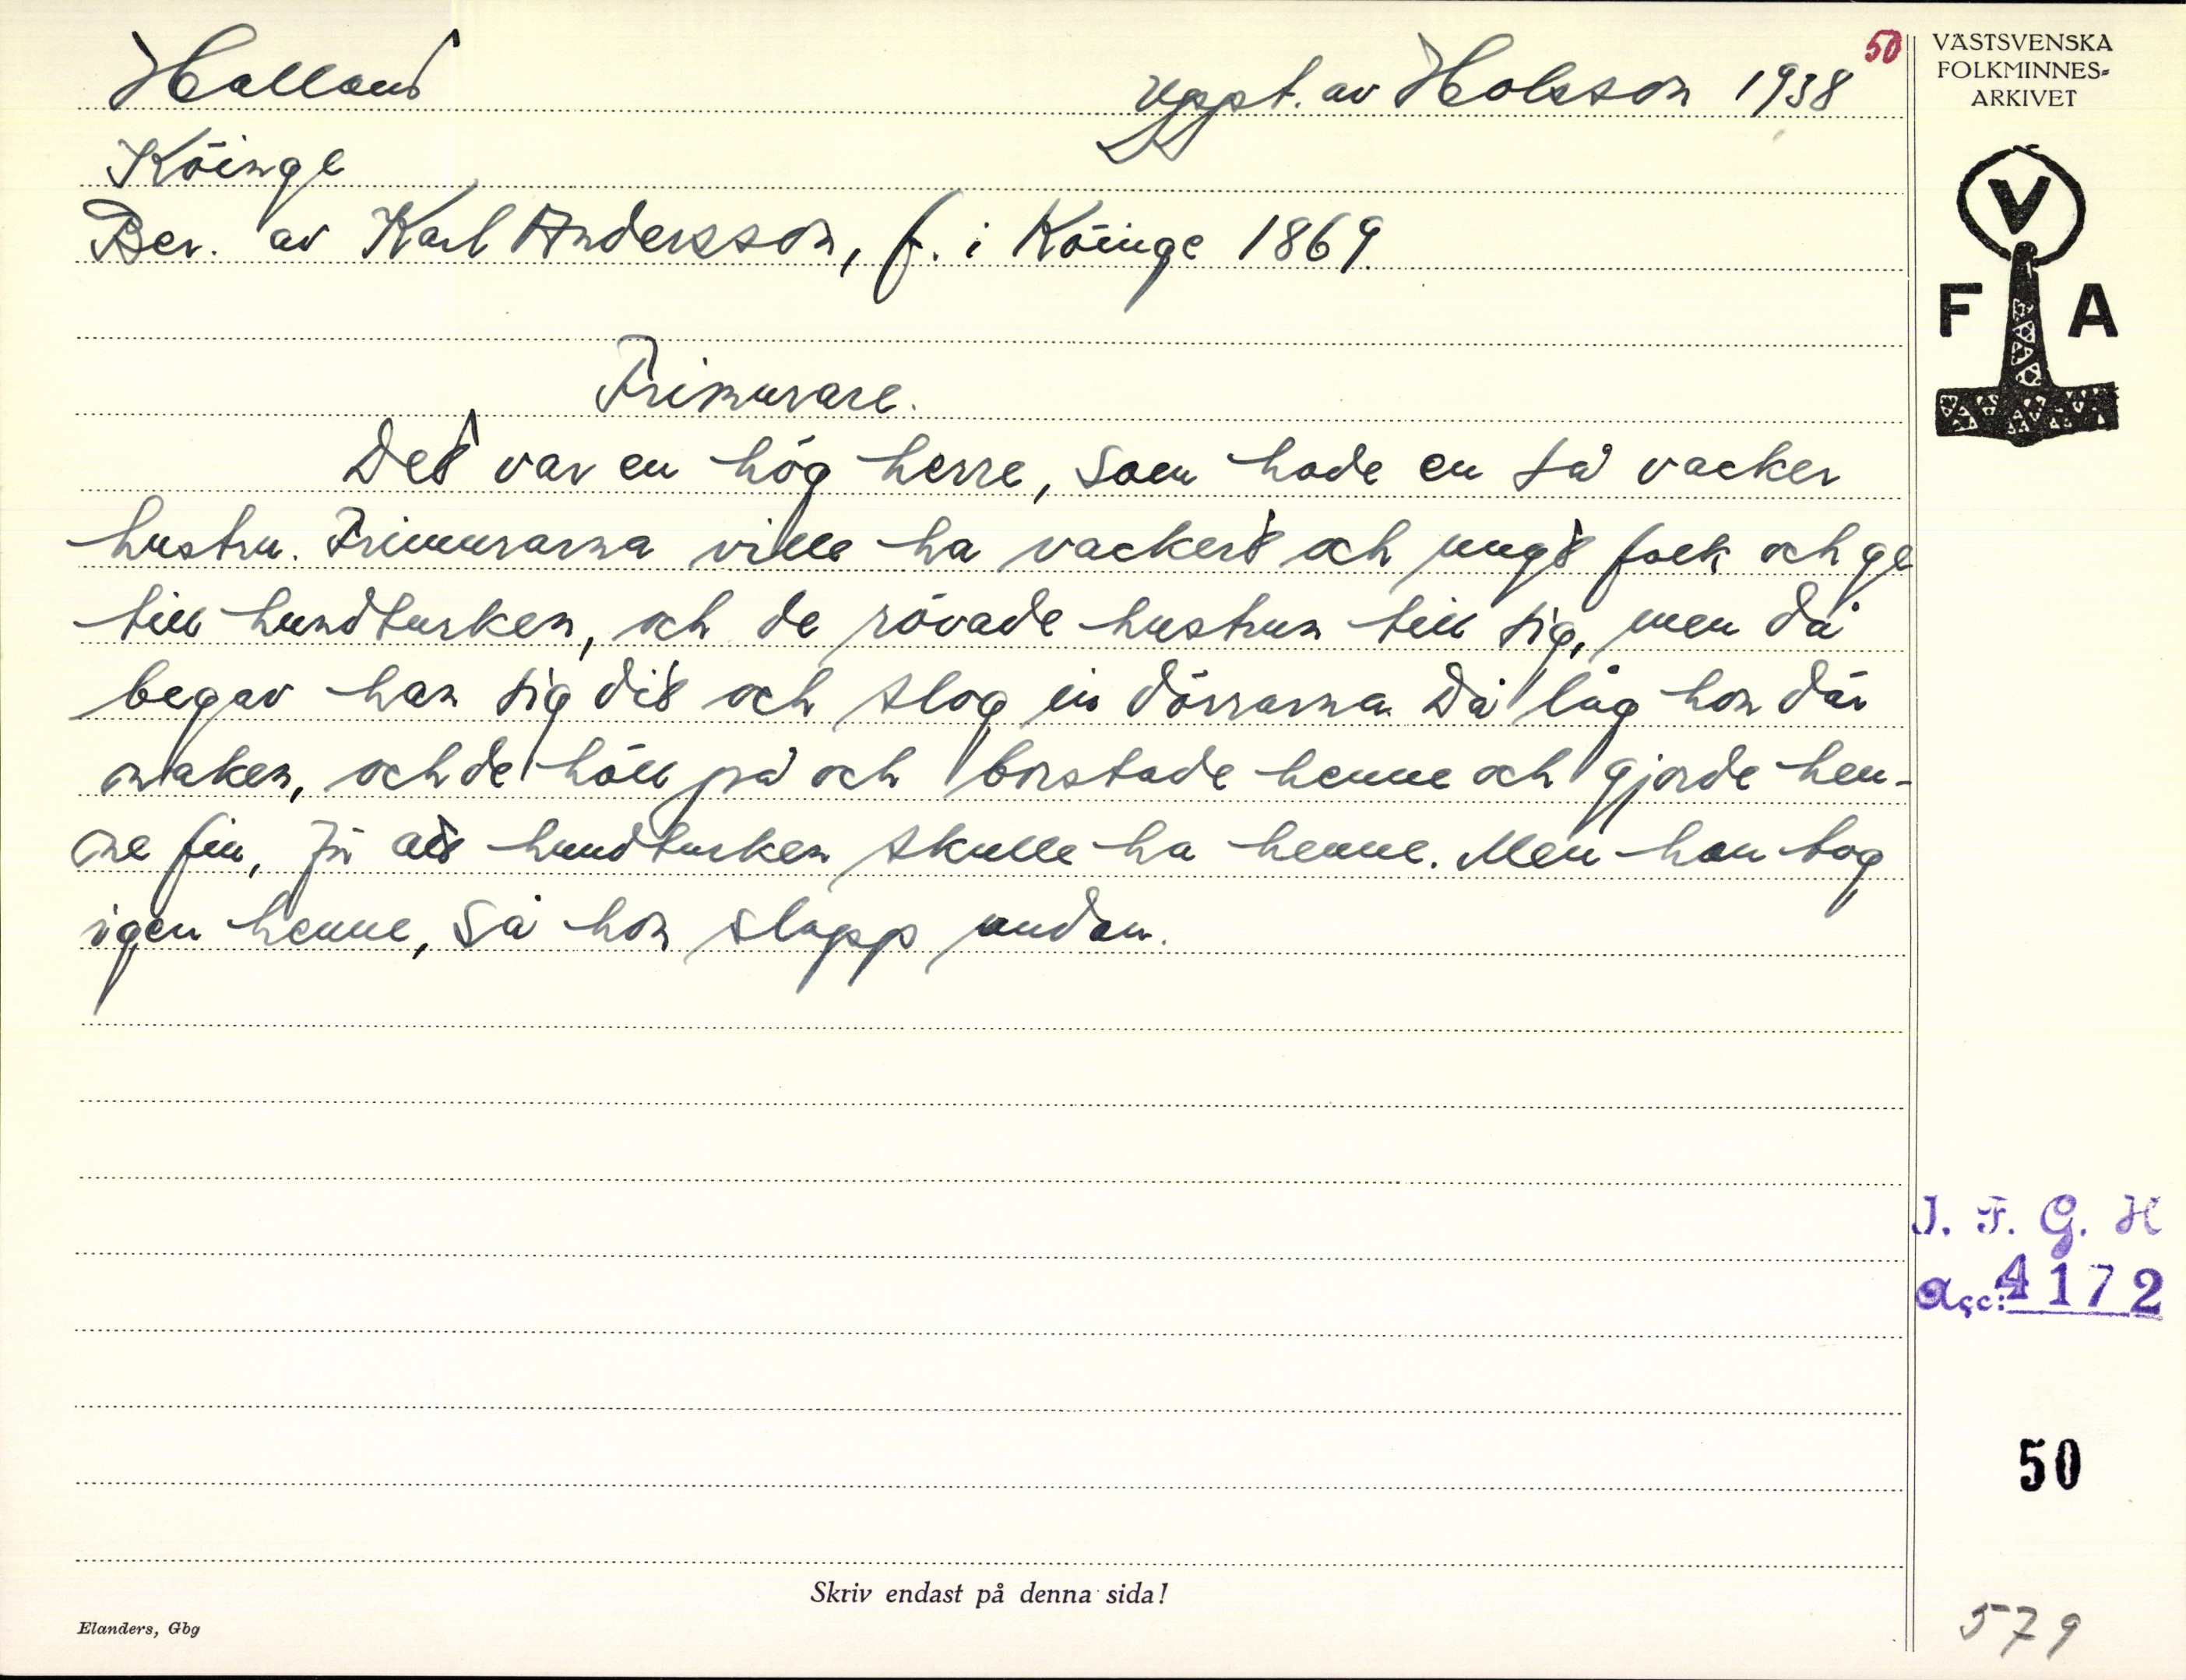 50
Halland
Uppt. av Holsson 1938
Köinge
Ber. av Karl Andersson, f. i Köinge 1869.
Frimurare.
Det var en hög herre, som hade en så vacker
hustru. Frimurarna ville ha vackert och ungt folk och ge
till hundturken, och de rövade hustrun till sig, men då
begav han sig dit och slog in dörrarna. Då låg hon där
naken, och de höll på och borstade henne och gjorde hen-
ne fin, för att hundturken skulle ha henne. Men han tog
igen henne, så hon slapp undan.
VÄSTSVENSKA
FOLKMINNES-
ARKIVET
V
F A
I. F. G. H
acc: 4172
50
579
Skriv endast på denna sida!
Elanders, Gbg